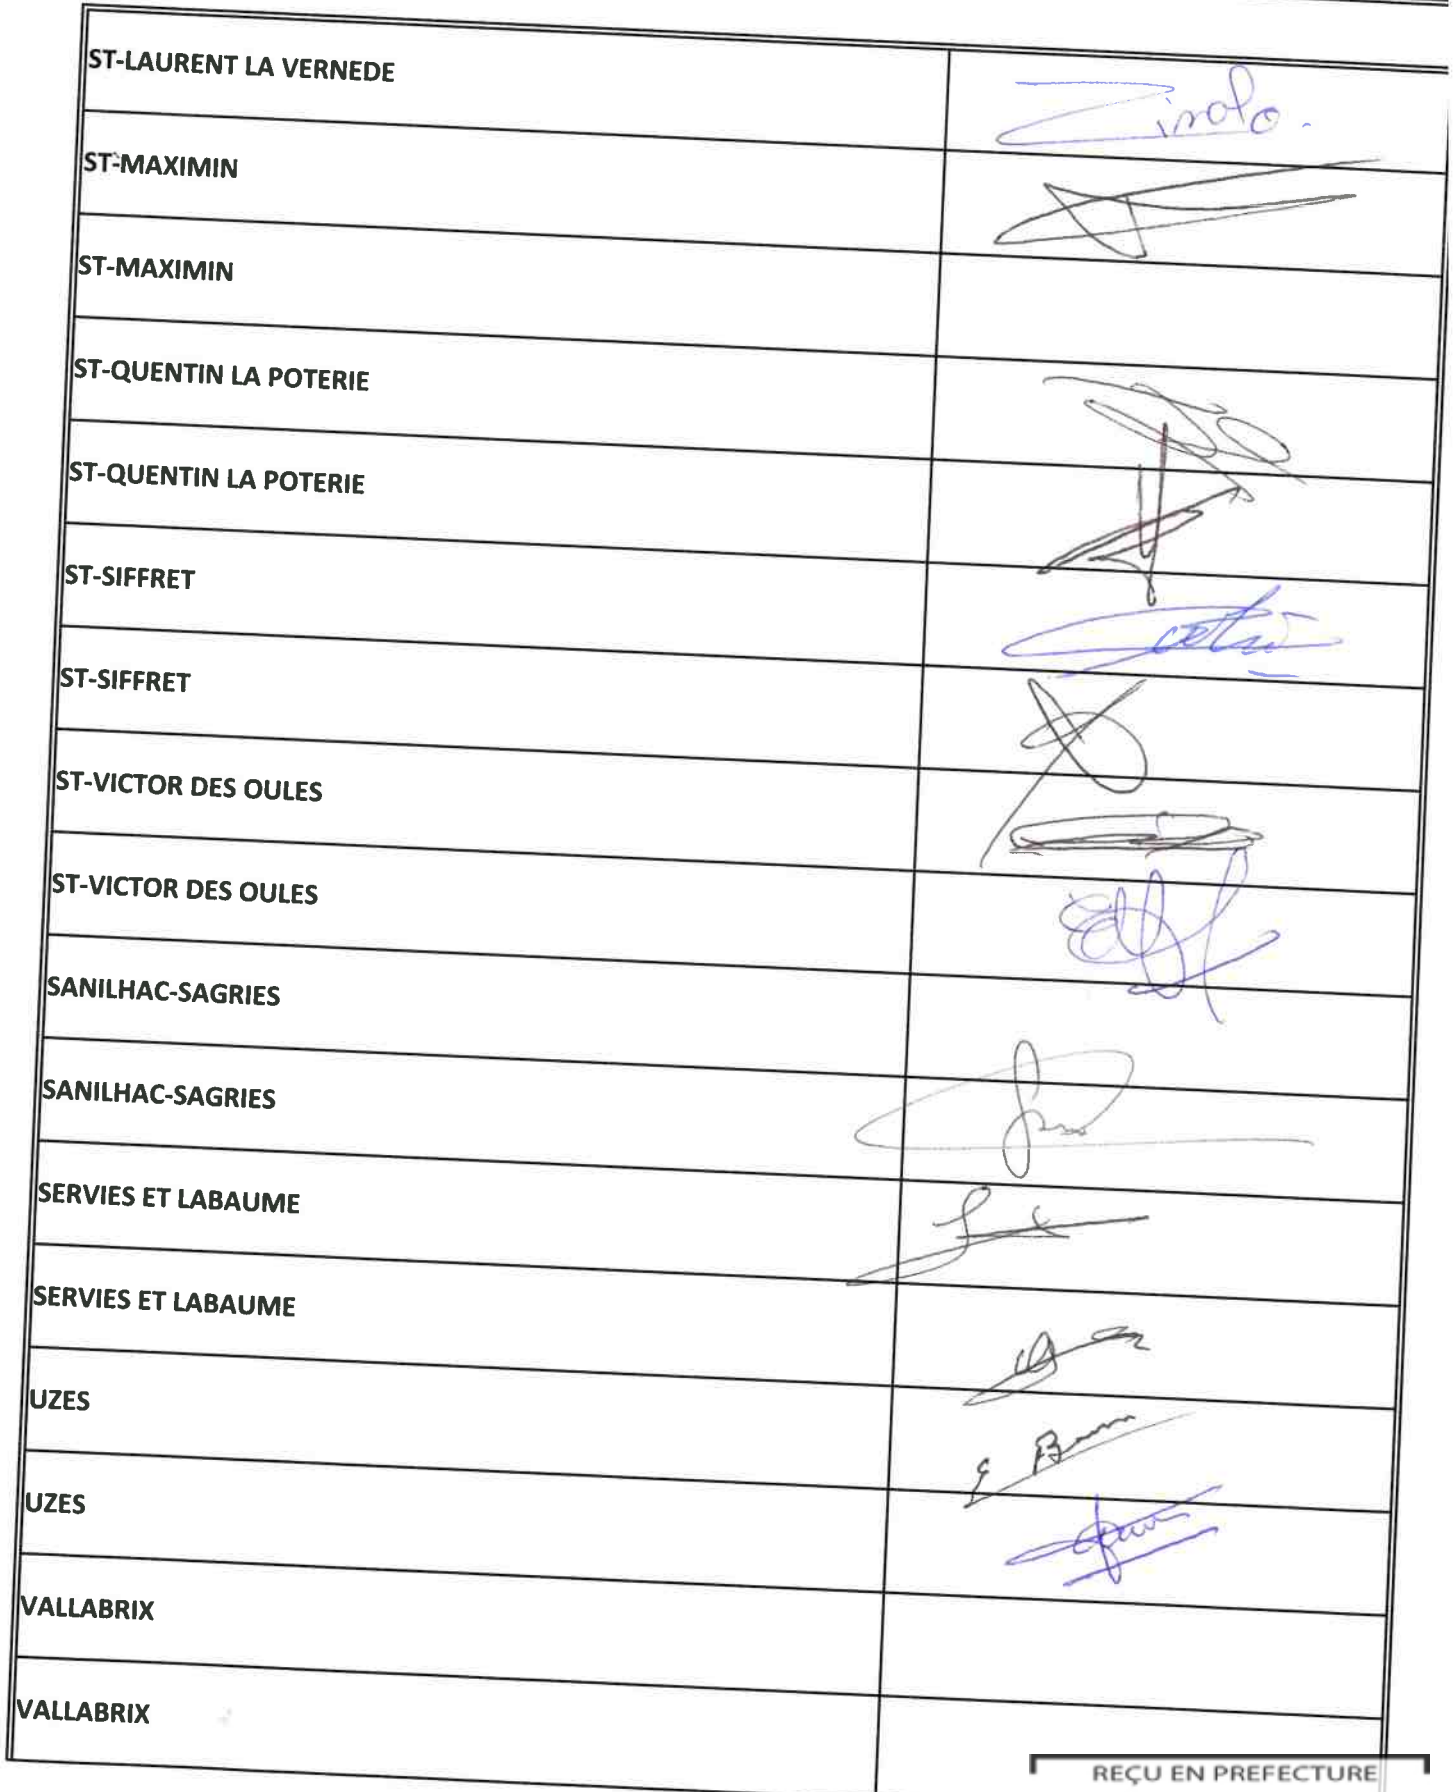 ST-LAURENT LA VERNEDE
Zinolo.
ST-MAXIMIN
ST-MAXIMIN
ST-QUENTIN LA POTERIE
ST-QUENTIN LA POTERIE
ST-SIFFRET
ST-SIFFRET
ST-VICTOR DES OULES
ST-VICTOR DES OULES
SANILHAC-SAGRIES
SANILHAC-SAGRIES
SERVIES ET LABAUME
SERVIES ET LABAUME
UZES
UZES
VALLABRIX
VALLABRIX
REÇU EN PREFECTURE